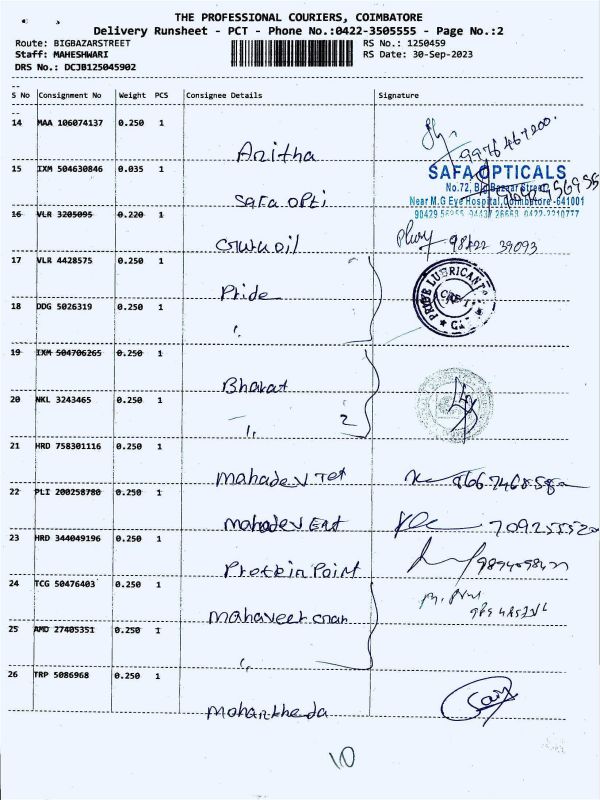 THE PROFESSIONAL COURIERS, COIMBATORE
Delivery Runsheet - PCT - Phone No.:0422-3505555 - Page No.:2
Route: BIGBAZARSTREET RS No.: 1250459
Staff: MAHESHWARI RS Date: 30-Sep-2023
DRS No.: DCJB125045902
S No Consignment No Weight PCS Consignee Details Signature
14 MAA 106074137 0.250 1
Anitha 9976467200.
15 IXM 504630846 0.035 1
SAFA OPTICALS
No.72, Big Bazaar Street,
safa opti Near M.G Eye Hospital, Coimbatore -641001
90429 56955 94437 26663 0422-2210777
16 VLR 3205095 0.220 1
guru oil 98422 39093
17 VLR 4428575 0.250 1
Pride PRIDE LUBRICANTS
18 DDG 5026319 0.250 1
19 IXM 504706265 0.250 1
Bharat
20 NKL 3243465 0.250 1
2
21 HRD 758301116 0.250 1
mahadev Tet
22 PLI 200258780 0.250 1
mahadev Ent
23 HRD 344049196 0.250 1
Protein Point
24 TCG 50476403 0.250 1
mahaveer
25 AMD 27405351 0.250 1
26 TRP 5086968 0.250 1
10